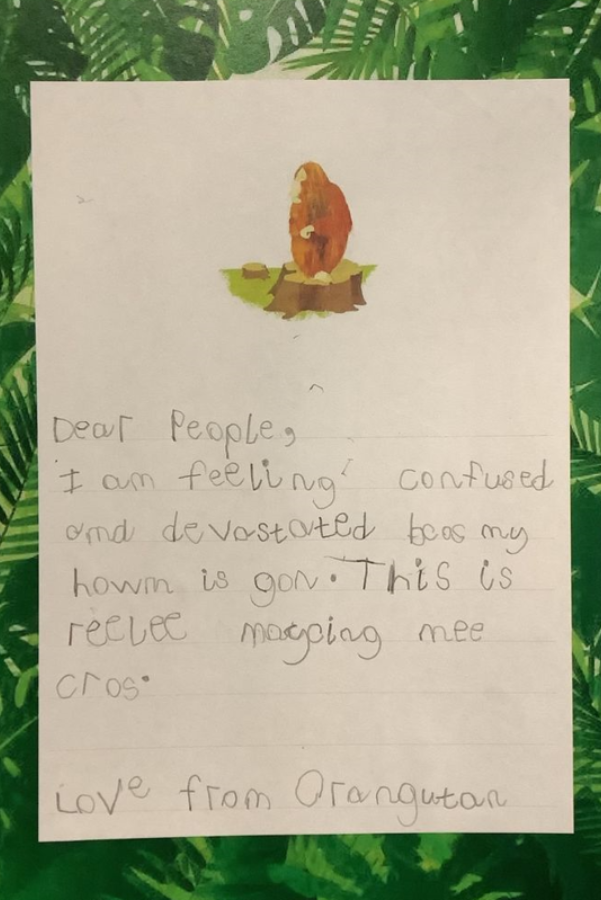 Dear People,
I am feeling confused
and devastated bcos my
howm is gon. This is
reelee magcing mee
cros.
Love from Orangutan